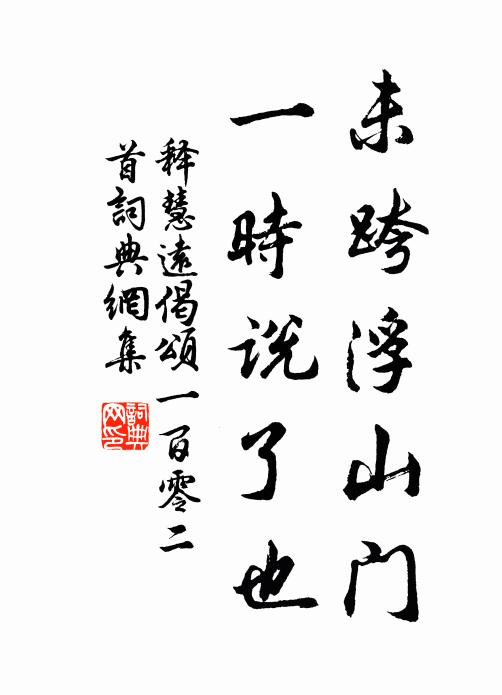 未跨浮山门
一時说了也
释慧遠偈頌一百零二
首詞典網集
詞典
网印